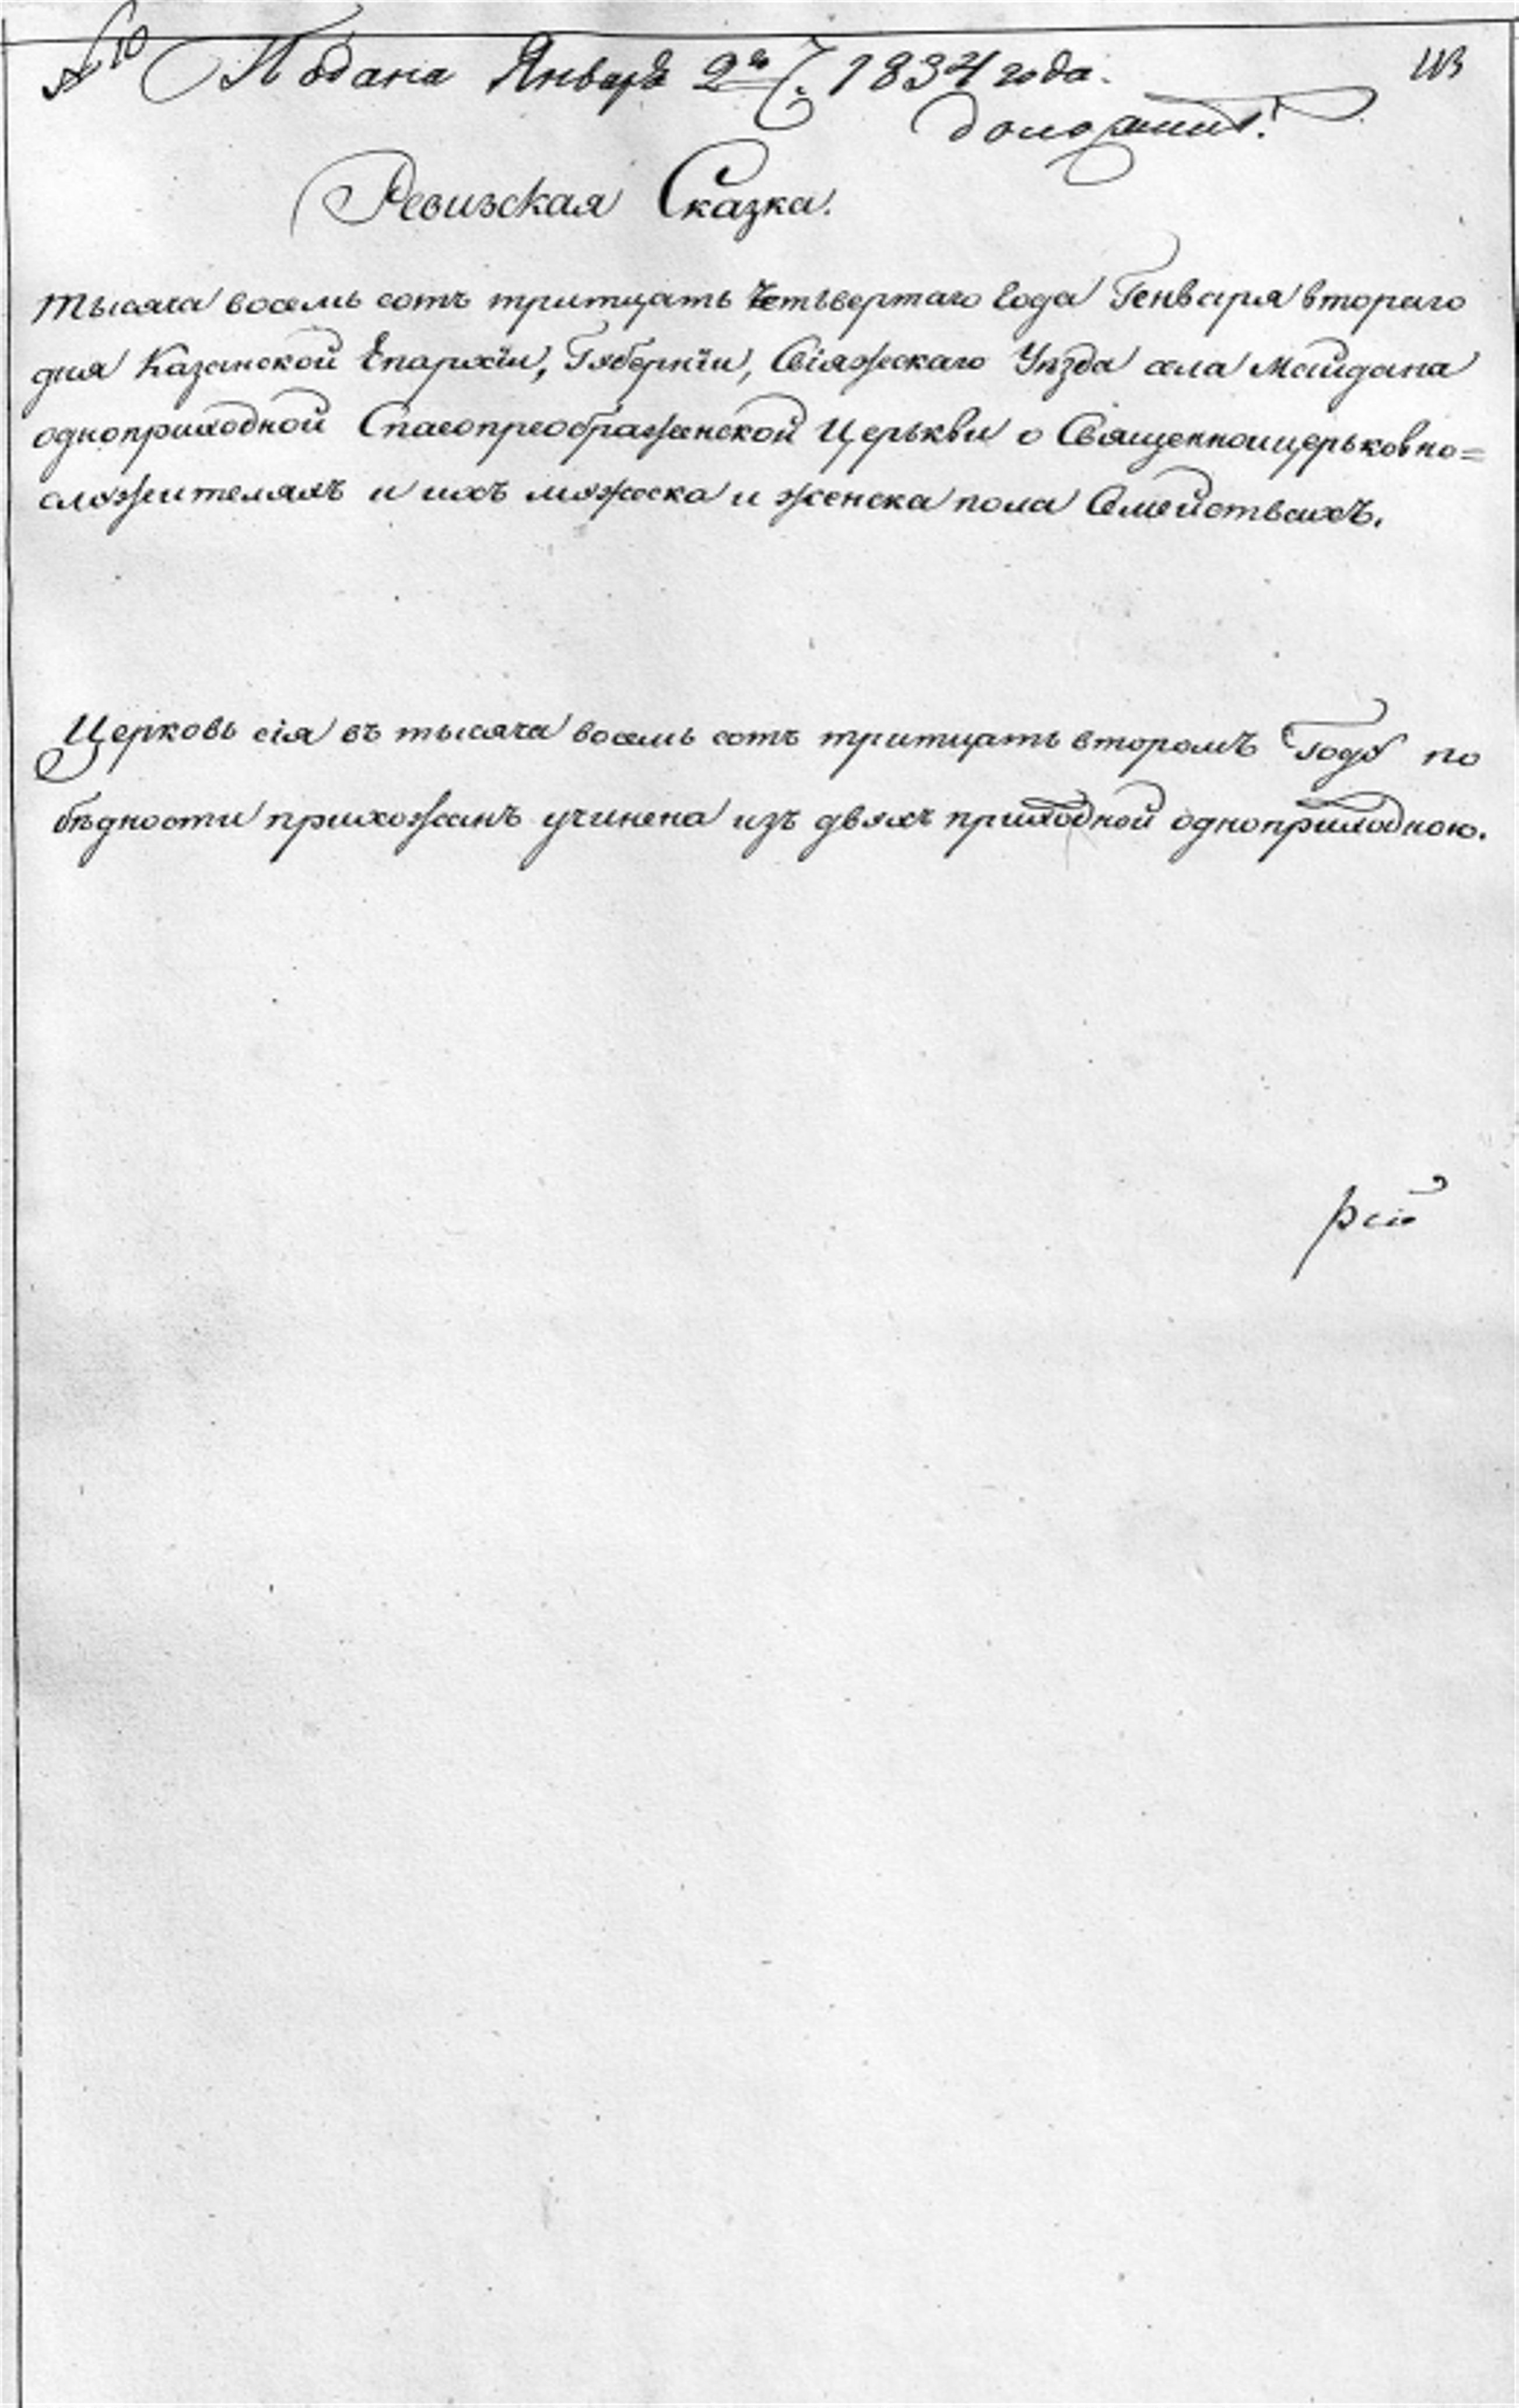 № 10 Подана Января 2го 1834 года.
доложить!
Ревизская Сказка.
тысяча восемь сотъ тритцать четьвертаго Года Генваря втораго
дня Казанской Епархїи, Гꙋбернїи, Свіяжскаго Уѣзда села Майдана
одноприходной Спасопреображенской Церькви о Священноицерьковно=
слꙋжителяхъ и ихъ мꙋжеска и женска пола Семействахъ.
Церковь сія въ тысяча восемь сотъ тритцать второмъ Годꙋ по
бѣдности прихожанъ учинена изъ двꙋхъ приходной одноприходною.